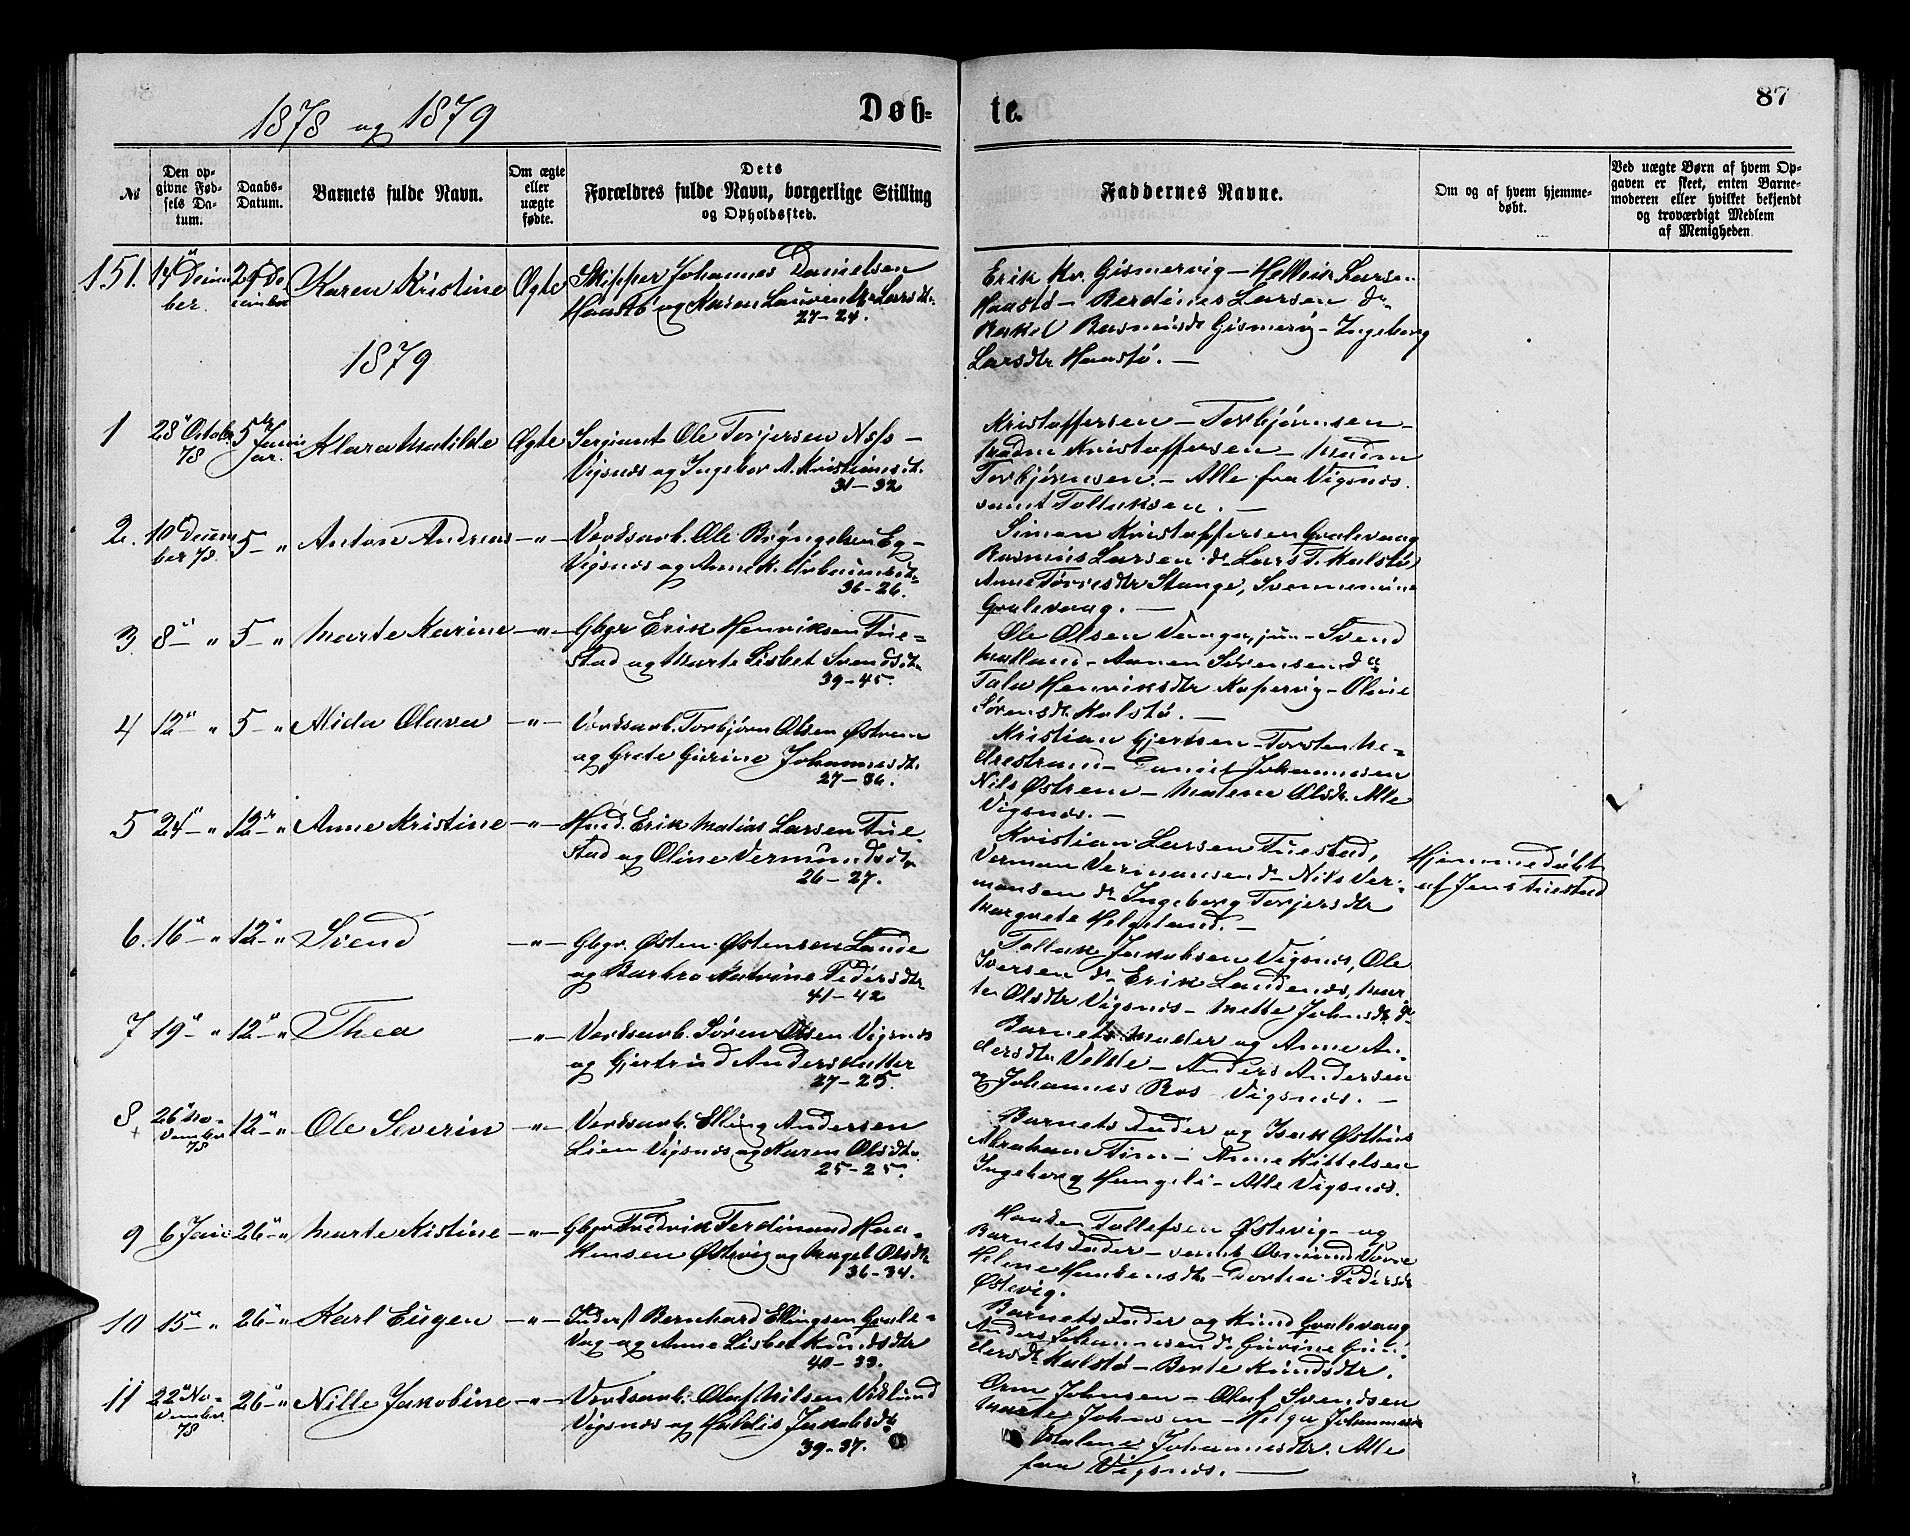 1878 og 1879
Døb-
te.
87
№
Den op-
givne Fød-
sels Da-
tum.
Daabs-
Datum.
Barnets fulde Navn.
Om ægte
eller
uægte
fødte.
Dets
Forældres fulde Navn, borgerlige Stilling
og Opholdssted.
Faddernes Navne.
Om og af hvem hjemme-
døbt.
Ved uægte Børn af hvem Op-
gaven er skeet, enten Barne-
moderen eller hvilket bekjendt
og troværdigt Medlem
af Menigheden.
151. 14 Decem
ber. Karen Kristine Ægte Skipper Johannes Danielsen
Haastø og Karen Lars
27-24.
Erik Kr. Gismervig - Larsen
Haastø - Berdines Larsen do
Rakel Rasmusdr Gismervig - Ingeborg
Larsdtr Haastø. -
1879
1 28 Octobr
78 5 Janu
ar. Klara Matilde Ægte Sergiant Ole Torjersen Næs -
Vigsnæs og Ingebor A. Kristiansdt.
31-32
Kristoffersen - Torbjørnsen -
Madm Kristoffersen - Madm
Torbjørnsen. - Alle fra Vigsnæs
samt Tollaksen. -
2. 10 Decem
ber 78. 5 - " Anton Andreas - " - Værksarb. Ole Eg -
Vigsnæs og Anne K.
36-26.
Simon Kristoffersen Gvalevaag
Rasmus Larsen do Lars T. Kalstø
Anne Stange,
Gvalevaag. -
3. 8 - " 5 - " Marte Karine - " - Gbgr Erik Henriksen Tue-
stad og Marte Lisbet Svendsdt.
39-45.
Ole Olsen - Svend
- Sørensen do
Talu Henriksdtr Kopervig - Oline
Sørensdt. Kalstø. -
4 12 - " 5 - " Alida Olava - " - Værksarb. Torbjørn Olsen Østrem
og Grete Gurine Johannesdt.
27-36.
Kristian Gjertsen - Torsten Ne-
drestrand - Johannesen
Nils Østrem - Malene Olsdr. Alle
Vigsnæs. -
5 24 - " 12 - " Anne Kristine - " - Husm. Erik Matias Larsen Tue-
stad og Oline Vermundsdtr
26-27.
Kristian Larsen Tuestad,
Verman Vermansen do Nils Ver-
mansen do Ingeborg Torjersdtr
Margrete Helgeland. -
Hjemmedøbt
af Jens Tuestad
6. 16 - " 12 - " Svend - " - Gbgr. Østen Østensen Lande
og Barbro Katrine Pedersdtr
41-42
Tollak Jakobsen Vigsnæs, Ole
Iversen do Erik Landenæs, Mar
te Olsdtr Vigsnæs - Mette Johnsdt. do
7 19 - " 12 - " Thea - " - Værksarb. Søren Olsen Vigsnæs
og Gjertrud Andersdatter
27-25.
Barnets Moder og Anne An-
dersdtr Velde - Anders Andersen
og Johannes Ros - Vigsnæs. -
8 26 No-
vember
78 12 - " Ole Severin - " - Værksarb. Elling Andersen
Lien Vigsnæs og Karen Olsdtr.
25-25.
Barnets Fader og Isak Østhus
Abraham - Anne Kittelsen
Ingeborg - Alle Vigsnæs.
9 6 Jan: 26 - " Marte Kistine - " - Gbgr Fredrik Ferdinand Haa-
kensen Østevig og Olsdtr
36-34.
Haaken Tollefsen Østevig - og
Barnets Fader - samt Vorre
Helene Haakensdtr - Dortea Pedersdt
Østevig.
10 15 - " 26 - " Karl Eugen - " - Inderst Bernhard Ellingsen Gvale-
vag og Anne Lisbet Knudsdtr
40-33.
Barnets Fader og Knud Gvalevaag
Anders Johannesen do Gurine
dersdt Kalstø - Berte Knudsdtr.
11 22 No-
vember
78 26 - " Nille Jakobine - " - Værksarb. Olaf Nilsen Viklund
Vigsnæs og Jakobsdtr
39-37.
Orm Johnsen - Olaf Svendsen
Marte Johnsen - Helga Johannesdtr
Malene Johannesdtr. Alle
fra Vigsnæs. -